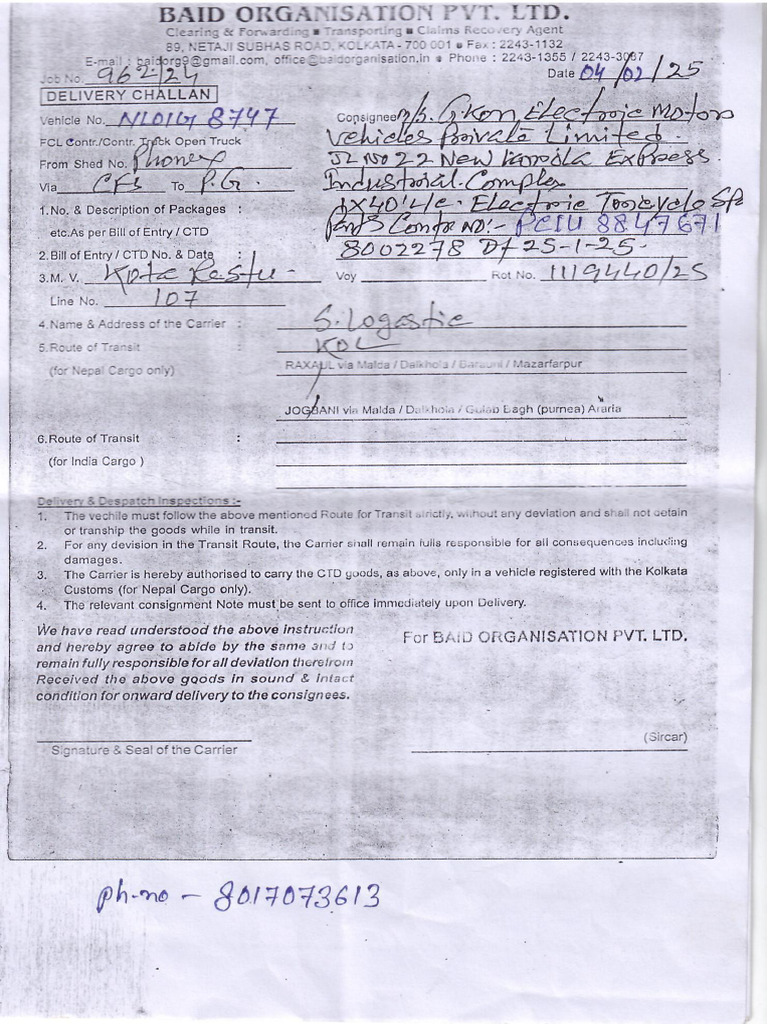 BAID ORGANISATION PVT. LTD.
Clearing & Forwarding ■ Transporting ■ Claims Recovery Agent
89, NETAJI SUBHAS ROAD, KOLKATA - 700 001 ■ Fax : 2243-1132
E-mail : baidorg9@gmail.com, office@baidorganisation.in ■ Phone : 2243-1355 / 2243-3087
Job No. 962/24 Date 04/02/25
DELIVERY CHALLAN
Vehicle No. NL01G 8747 Consignee M/s. Gkon Electroic Motors
FCL Contr./Contr. Truck Open Truck Vehicles Private Limited.
From Shed No. Phonex JL No 22 New Express
Via CFS To P.G. Industrial Complex
1.No. & Description of Packages : 1X40' Electric
etc.As per Bill of Entry / CTD Contr NO:- PCIU 8847671
2.Bill of Entry / CTD No. & Date : 8002278 Dt 25-1-25.
3.M. V. Kota Restu - Voy Rot No. 1119440/25
Line No. 107
4.Name & Address of the Carrier : S. Logastic
5.Route of Transit : KOL
(for Nepal Cargo only) RAXAUL via Malda / Dalkhola / Barauni / Mazarfarpur
JOGBANI via Malda / Dalkhola / Gulab Bagh (purnea) Araria
6.Route of Transit :
(for India Cargo )
Delivery & Despatch Inspections :-
1. The vechile must follow the above mentioned Route for Transit strictly, without any deviation and shall not detain
or tranship the goods while in transit.
2. For any devision in the Transit Route, the Carrier shall remain fulls responsible for all consequences including
damages.
3. The Carrier is hereby authorised to carry the CTD goods, as above, only in a vehicle registered with the Kolkata
Customs (for Nepal Cargo only).
4. The relevant consignment Note must be sent to office immediately upon Delivery.
We have read understood the above instruction
and hereby agree to abide by the same and to
remain fully responsible for all deviation therefrom
Received the above goods in sound & intact
condition for onward delivery to the consignees.
For BAID ORGANISATION PVT. LTD.
(Sircar)
Signature & Seal of the Carrier
ph-no - 8017073613